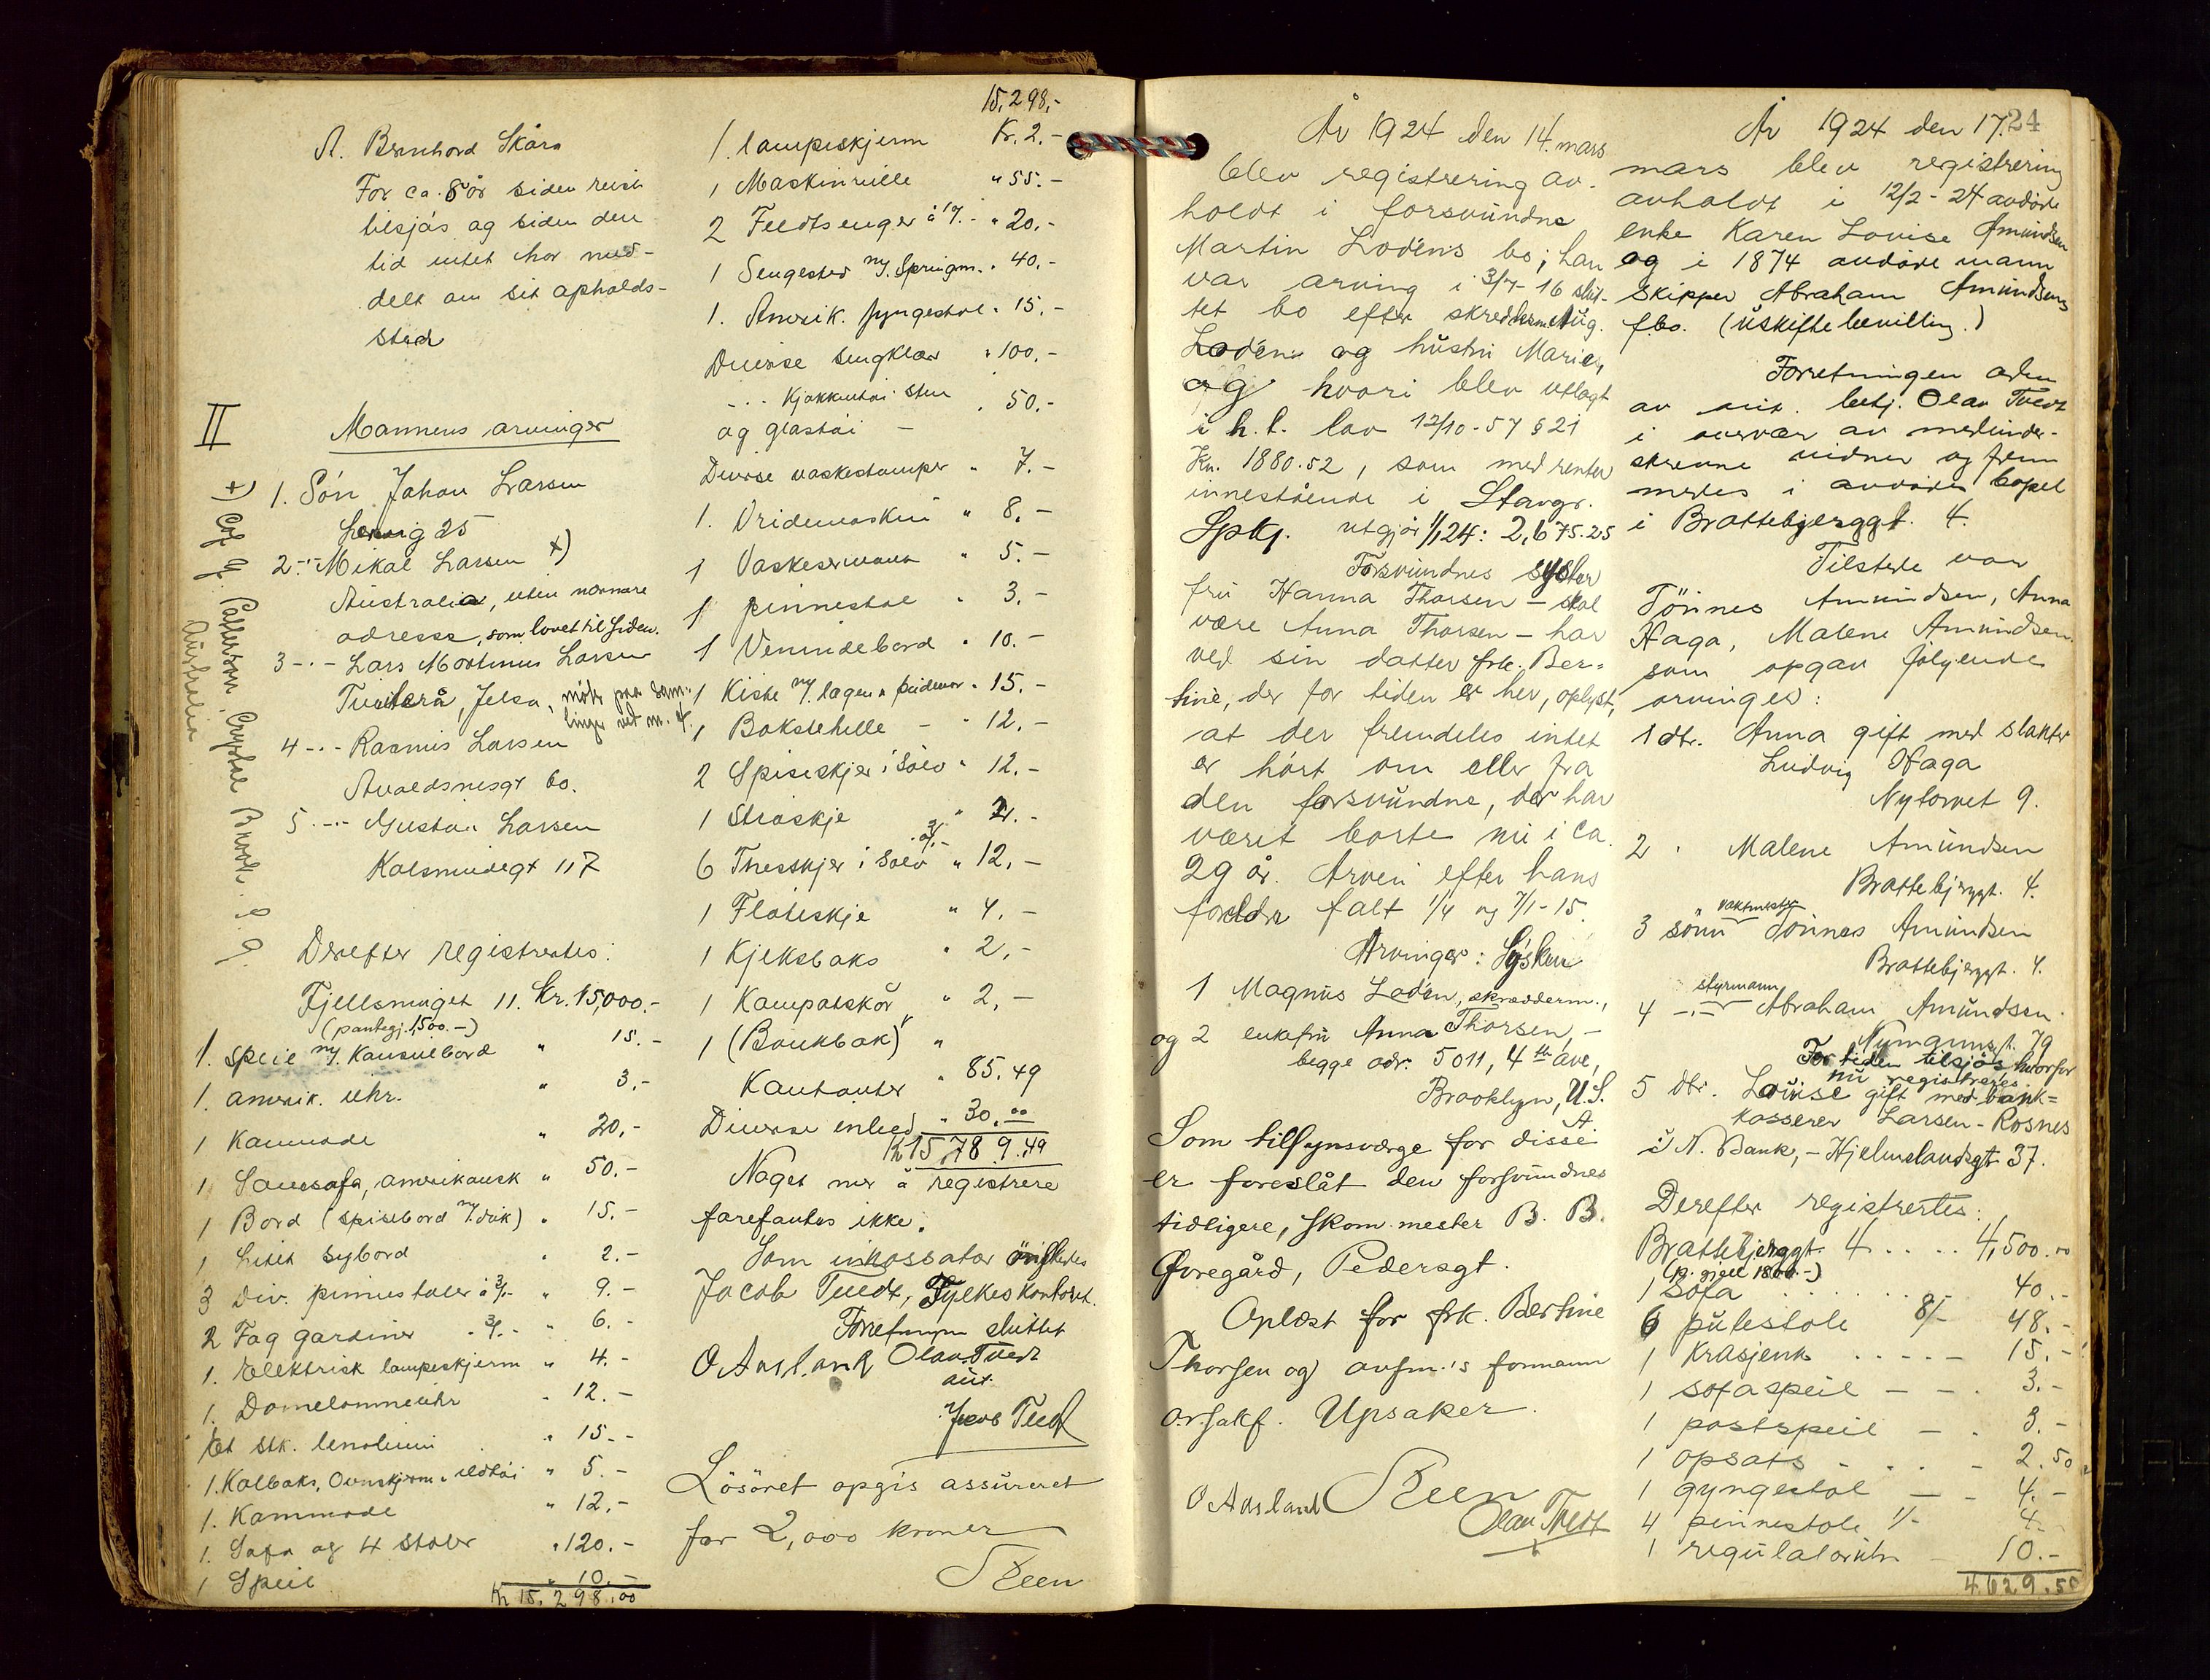 A. Bernhard Skåra
For ca. 8 år siden reist
tilsjøs og siden den
tid intet har med-
delt om sit opholds-
sted
II
Mannens arvinger
1. Sön Johan Larsen
25
2 -"- Mikal Larsen +)
Australia, uten nærmere
adresse, som lovet til siden.
3 -"- Lars Martinus Larsen
Jelsa, møte paa sam-
linger ved m. 4.
4 -"- Rasmus Larsen
Avaldsnesgt 60.
5 -"- Gustav Larsen
Kalhammergt 117
+) C/o G. Patterson, Crystal Brook. S. A.
Australia
Derefter registrertes:
Fjellsmuget 11. Kr. 15,000.-
(pantegj. 1,500.-)
1. Speil m/. Konsulbord " 15.-
1. amerik. uhr. " 3.-
1 Kommode " 20.-
1 Sovesofa, amerikansk " 50.-
1 Bord (spisebord m/. duk) " 15.-
1 Litet sybord " 2.-
3 Div. pinnestoler à 3/- " 9.-
2 Fag gardiner à 3/.- " 6.-
1. Elektrisk lampeskjerm " 4.-
1. Damelommeuhr " 12.-
Et stk. linoleum " 15.-
1. Kolboks, Ovnskjerm & ildtøi " 5.-
1. Kommode " 12.-
1. Sofa og 4 stoler " 120.-
1 Speil " 10.-
Kr 15,298.00
15,298.-
1. lampeskjerm Kr. 2.-
1 Maskinrulle " 55.-
2 Feltsenger à 10.- " 20.-
1 Sengested m/. Springm. " 40.-
1. Amerik. gyngestol " 15.-
Diverse sengklær " 100.-
-"- Kjøkkentøi sten
og glastøi - " 50.-
Diverse vaskestamper " 7.-
1. Vridemaskin " 8.-
1 Vaskeservant " 5.-
1 pinnestol " 3.-
1 Venindebord " 10.-
1 Kiste m/. lagen & putevar " 15.-
1 Bokstehelle - " 12.-
2 Spiseskjer i Sølv " 12.-
1 Strøskje " 2.-
6 Theskjer i Sølv à 2/.- " 12.-
1 Fløteskje " 4.-
1 Kjeksboks " 2.-
1 Kompotskål " 2.-
1 (Bankbok) "
Kontanter " 85.49
Diverse innbo " 30.00
Kr 15,789.49
Noget mer å registrere
forefantes ikke.
Som inkassator ønskedes
Jacob Tvedt, Fylkeskontoret.
Forretningen sluttet
O Aasland Olav Tvedt
aut.
Jacob Tvedt
Løsøret opgis assureret
for 2,000 kroner
Steen
År 1924 den 14. mars
blev registrering av-
holdt i forsvundne
Martin Lodén's bo; han
var arving i 3/7-16 slut-
tet bo efter skreddersm. Aug.
Lodén og hustru Marie,
og hvori blev utlagt
i h. t. lov 12/10-57 § 21
Kr. 1880.52, som med renter
innestående i Stavgr.
Spkg. utgjør 1/1 24: 2,675.25
Forsvundnes syster
fru Hanna Thorsen - skal
være Anna Thorsen - har
ved sin datter frk. Ber-
tine, der for tiden er her, oplyst,
at der fremdeles intet
er hørt om eller fra
den forsvundne, der har
været borte nu i ca.
29 år. Arven efter hans
foreldre falt 1/4 og 7/1-15.
Arvinger: Sysken
1 Magnus Lodén, skredderm.,
og 2 enkefru Anna Thorsen, -
begge adr. 5011, 4th ave,
Brooklyn, U.S.
A.
Som tilsynsværge for disse
er foreslåt den forsvundnes
tidligere, skom.mester B. B.
Øvregård, Pedersgt.
Oplæst for frk. Bertine
Thorsen og avsm.'s formann
o.r.sakf. Upsaker.
O Aasland Steen
Olav Tvedt
24
År 1924 den 17.
mars blev registrering
avholdt i 12/2-24 avdøde
enke Karen Lovise Amundsen
og i 1874 avdøde mann
skipper Abraham Amundsens
f.bo. (uskiftebevilling.)
Forretningen
av aut. betj. Olav Tvedt
i overvær av medunder-
skrevne vidner og frem-
medes i avdødes bopel
i Brattebjerggt. 4.
Tilstede var
Tönnes Amundsen, Anna
Haga, Malene Amundsen
som opgav følgende
arvinger:
1 dtr. Anna gift med slakter
Ludvig Haga
Nytorvet 9.
2 " Malene Amundsen
Brattebjerggt. 4.
vaktmester
3 sönn Tönnes Amundsen
Brattebjerggt. 4.
styrmann
4 -"- Abraham Amundsen.
Nymannsgt. 79
For tiden tilsjøs hvorfor
nu registreres.
5 dtr. Lovise gift med bank-
kasserer Larsen-Rosnes
i N. Bank, - Hjelmelandsgt 37.
Derefter registrertes:
Brattebjerggt. 4 . . . . 4,500.00
(p. gjell 1800.-)
1 sofa . . . . . 40.-
6 pulestole 8/- 48.-
1 Krasjenk . . . . . 15.-
1 sofaspeil - - . 3.-
1 postspeil - . 3.-
1 opsats - . . . - 2.50
1 gyngestol - - 4.-
4 pinnestole 1/- 4.-
1 regulatoruhr - 10.-
4.629.50